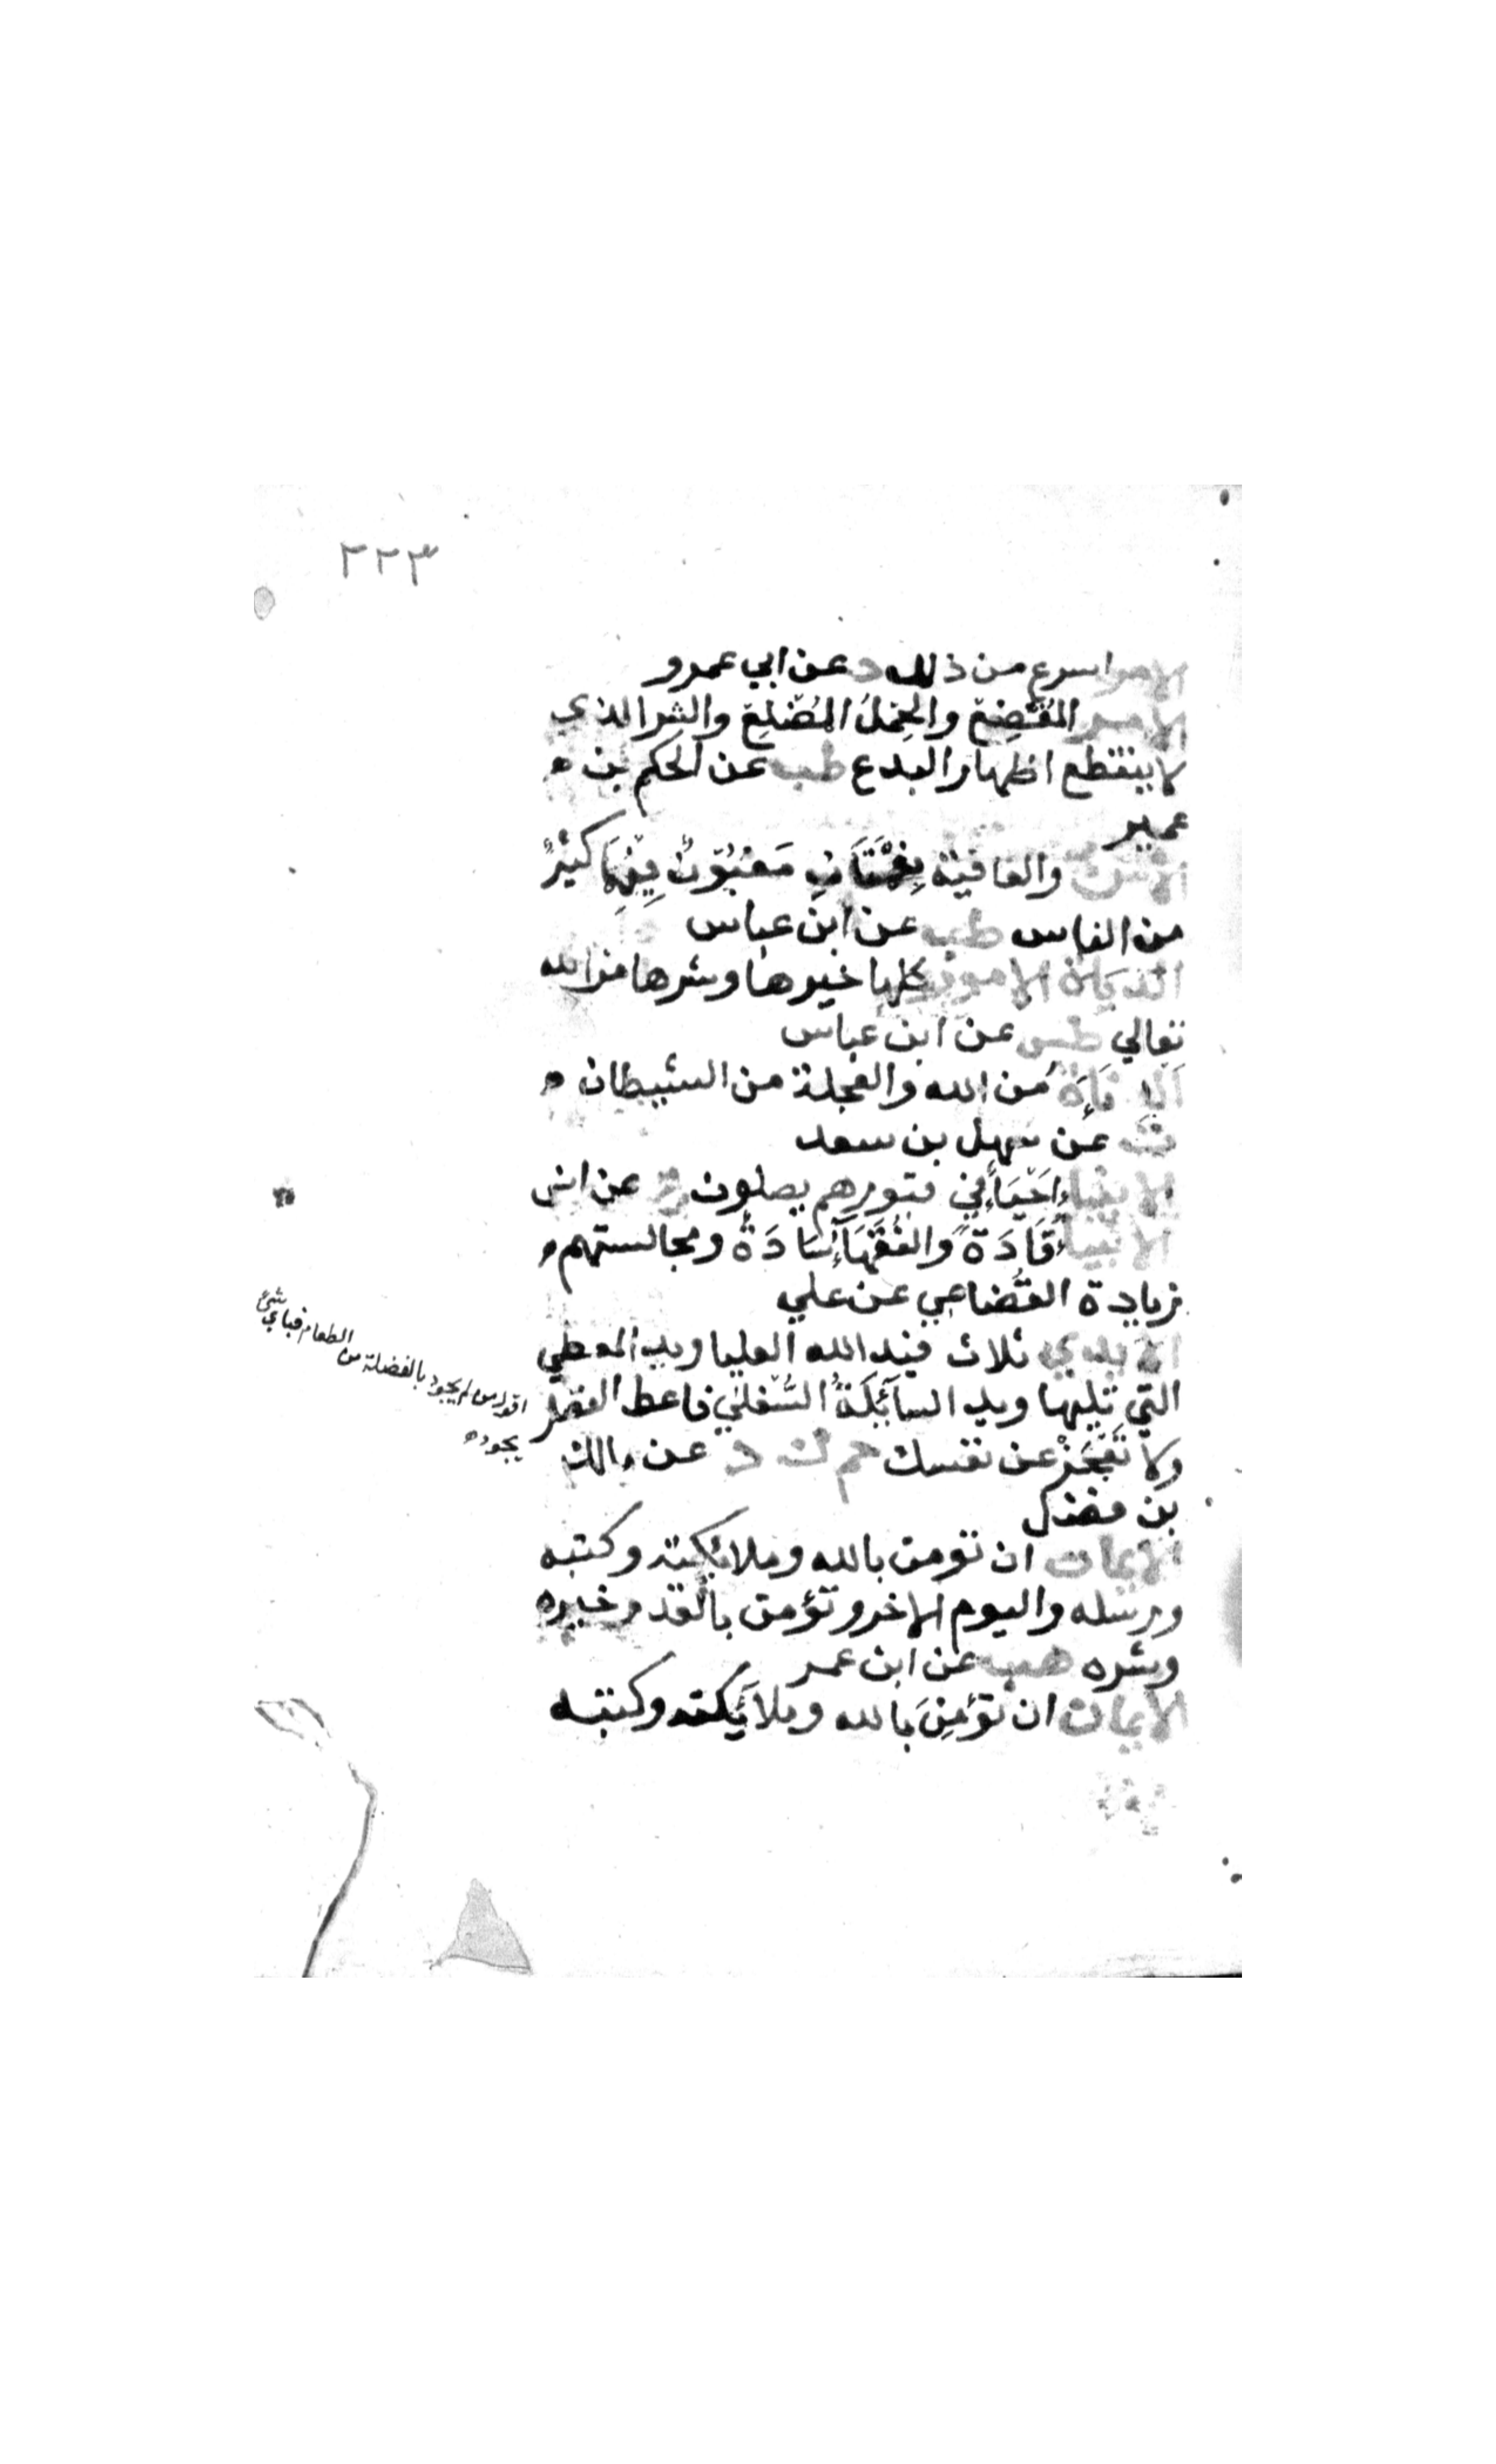 ٢٢٣
الامر اسرع من ذلك د عن ابي عمرو
الامر المُفْضِع والحِمْلُ المُضْلِع والشر الذي
لا ينقطع اظهار البدع طب عن الحكم بن
عمير
الأمن والعافية نِعْمَتَانِ مَغْبُوْنٌ فِيْهِمَا كَثِيْرٌ
من الناس طب عن ابن عباس
الامور كلها خيرها وشرها من الله
تعالي طس عن ابن عباس
الاناة من الله والعجلة من الشيطان
ت عن سهل بن سعد
الانبياء احْيَاء في قبورهم يصلون ع عن انس
الانبياء قَادَةٌ والفُقَهَاء سَادَةٌ ومجالستهم
زيادة القضاعي عن علي
الايدي ثلاث فيد الله العليا ويد المعطي
التي تليها ويد السائلة السُّفلي فاعط الفضل
ولا تَعْجَزْ عن نفسك حم د ك عن مالك
بن نضلة
الايمان ان تومن بالله وملائكته وكتبه
ورسله واليوم الاخر وتؤمن بالقدر خيره
وشره هب عن ابن عمر
الايمان ان تؤمِنَ بالله وملائكته وكتبه
اقول من لم يجود بالفضلة من
الطعام فباي شئ
يجود